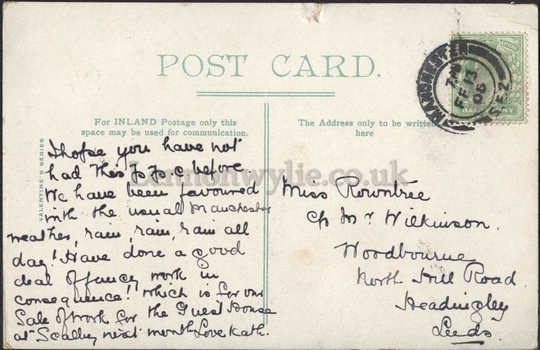 POST CARD.
For INLAND Postage only this
space may be used for communication.
The Address only to be written
here
VALENTINE'S SERIES
MANCHESTER
FE 13
05
HALFPENNY
I hope you have not
had this p.p.c before
We have been favoured
with the usual Manchester
weather, rain, rain, rain all
day! Have done a good
deal of fancy work in
consequence! which is for our
Sale of Work for the Guest House
at Scalby next month. Love Kath.
Miss Rowntree
c/o Mr Wilkinson.
Woodbourne
North Hill Road
Headingley
Leeds.
wylie.co.uk